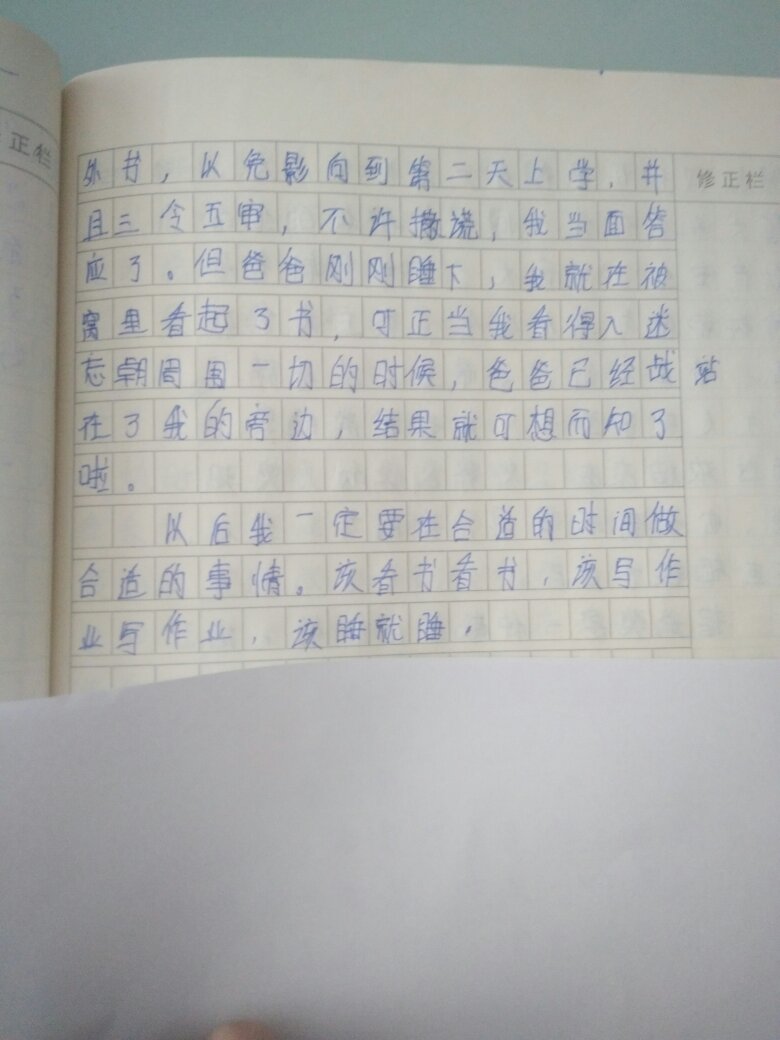 正栏
修正栏
外书，以免影向到第二天上学，并
且三令五审，不许撒谎，我当面答
应了。但爸爸刚刚睡下，我就在被
窝里看起了书，可正当我看得入迷
忘朝周围一切的时候，爸爸已经战 站
在了我的旁边，结果就可想而知了
啦。
以后我一定要在合适的时间做
合适的事情。该看书看书，该写作
业写作业，该睡就睡。